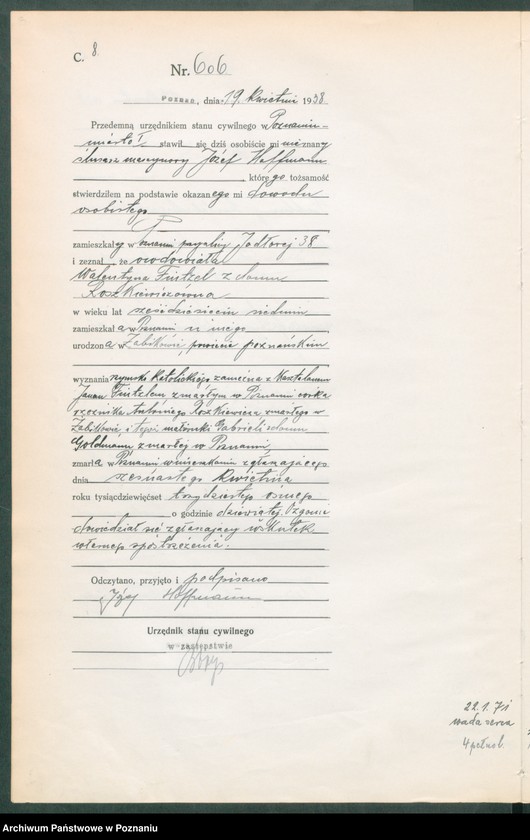 C. 8
Nr. 606
POZNAŃ, dnia 19. kwietnia 1938
Przedemną urzędnikiem stanu cywilnego w Poznaniu-
miasto I stawił się dziś osobiście mi nieznany
ślusarz maszynowy Józef Hoffmann
którego tożsamość
stwierdziłem na podstawie okazanego mi dowodu
osobistego
zamieszkały w Poznaniu przy ulicy Jodłowej 38
i zeznał, że owdowiała
Walentyna Fintzel z domu
Roszkiewiczówna
w wieku lat sześćdziesięciu siedmiu
zamieszkała w Poznaniu u niego
urodzona w Żabikowie, powiecie poznańskim
wyznania rzymsko katolickiego zamężna z
Janem Fintzlem zmarłym w Poznaniu córka
rzeźnika Antoniego Roszkiewicza zmarłego w
Żabikowie i tegoż małżonki Gabrieli z domu
Goldmann zmarłej w Poznaniu
zmarła w Poznaniu w mieszkaniu zgłaszającego
dnia szesnastego kwietnia
roku tysiącdziewięćset trzydziestego ósmego
o godzinie dziewiątej. O zgonie
dowiedział się zgłaszający wskutek
własnego spostrzeżenia.
Odczytano, przyjęto i podpisano
Józef Hoffmann
Urzędnik stanu cywilnego
w zastępstwie
22.1.71
wada serca
4
Archiwum Państwowe w Poznaniu